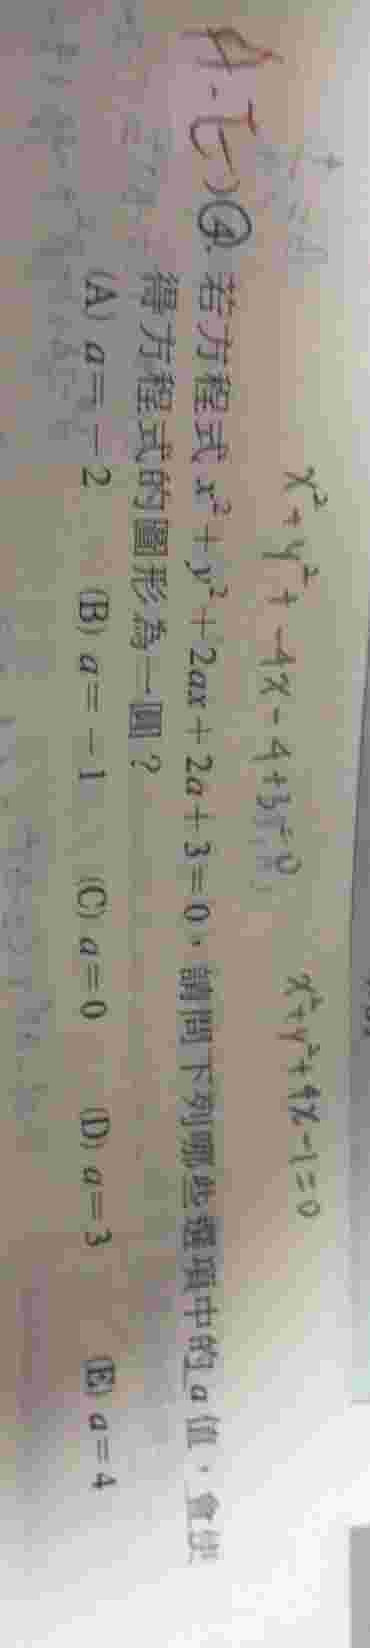 x²+y²+-4x-4+3=0
x²+y²+4x-1=0
④ 若方程式 x²+y²+2ax+2a+3=0,請問下列哪些選項中的a值,會使
得方程式的圖形為一圓?
(A) a=-2 (B) a=-1 (C) a=0 (D) a=3 (E) a=4